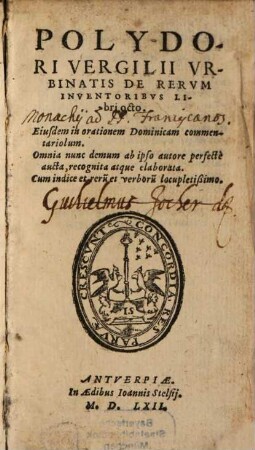 POLYDO-
RI VERGILII VR-
BINATIS DE RERVM
INVENTORIBVS LI-
bri octo.
Monachij ad PP. Franciscanos
Eiusdem in orationem Dominicam commen-
tariolum.
Omnia nunc demum ab ipso autore perfectè
aucta, recognita atque elaborata.
Cum indice et rerũ et verborũ locupletißimo.
Guilielmus Jocher
PARVAE CRESCVNT CONCORDIA RES
IS
ANTVERPIÆ.
In Ædibus Ioannis Stelsij.
M. D. LXII.
Bayerische
Staatsbibliothek
München